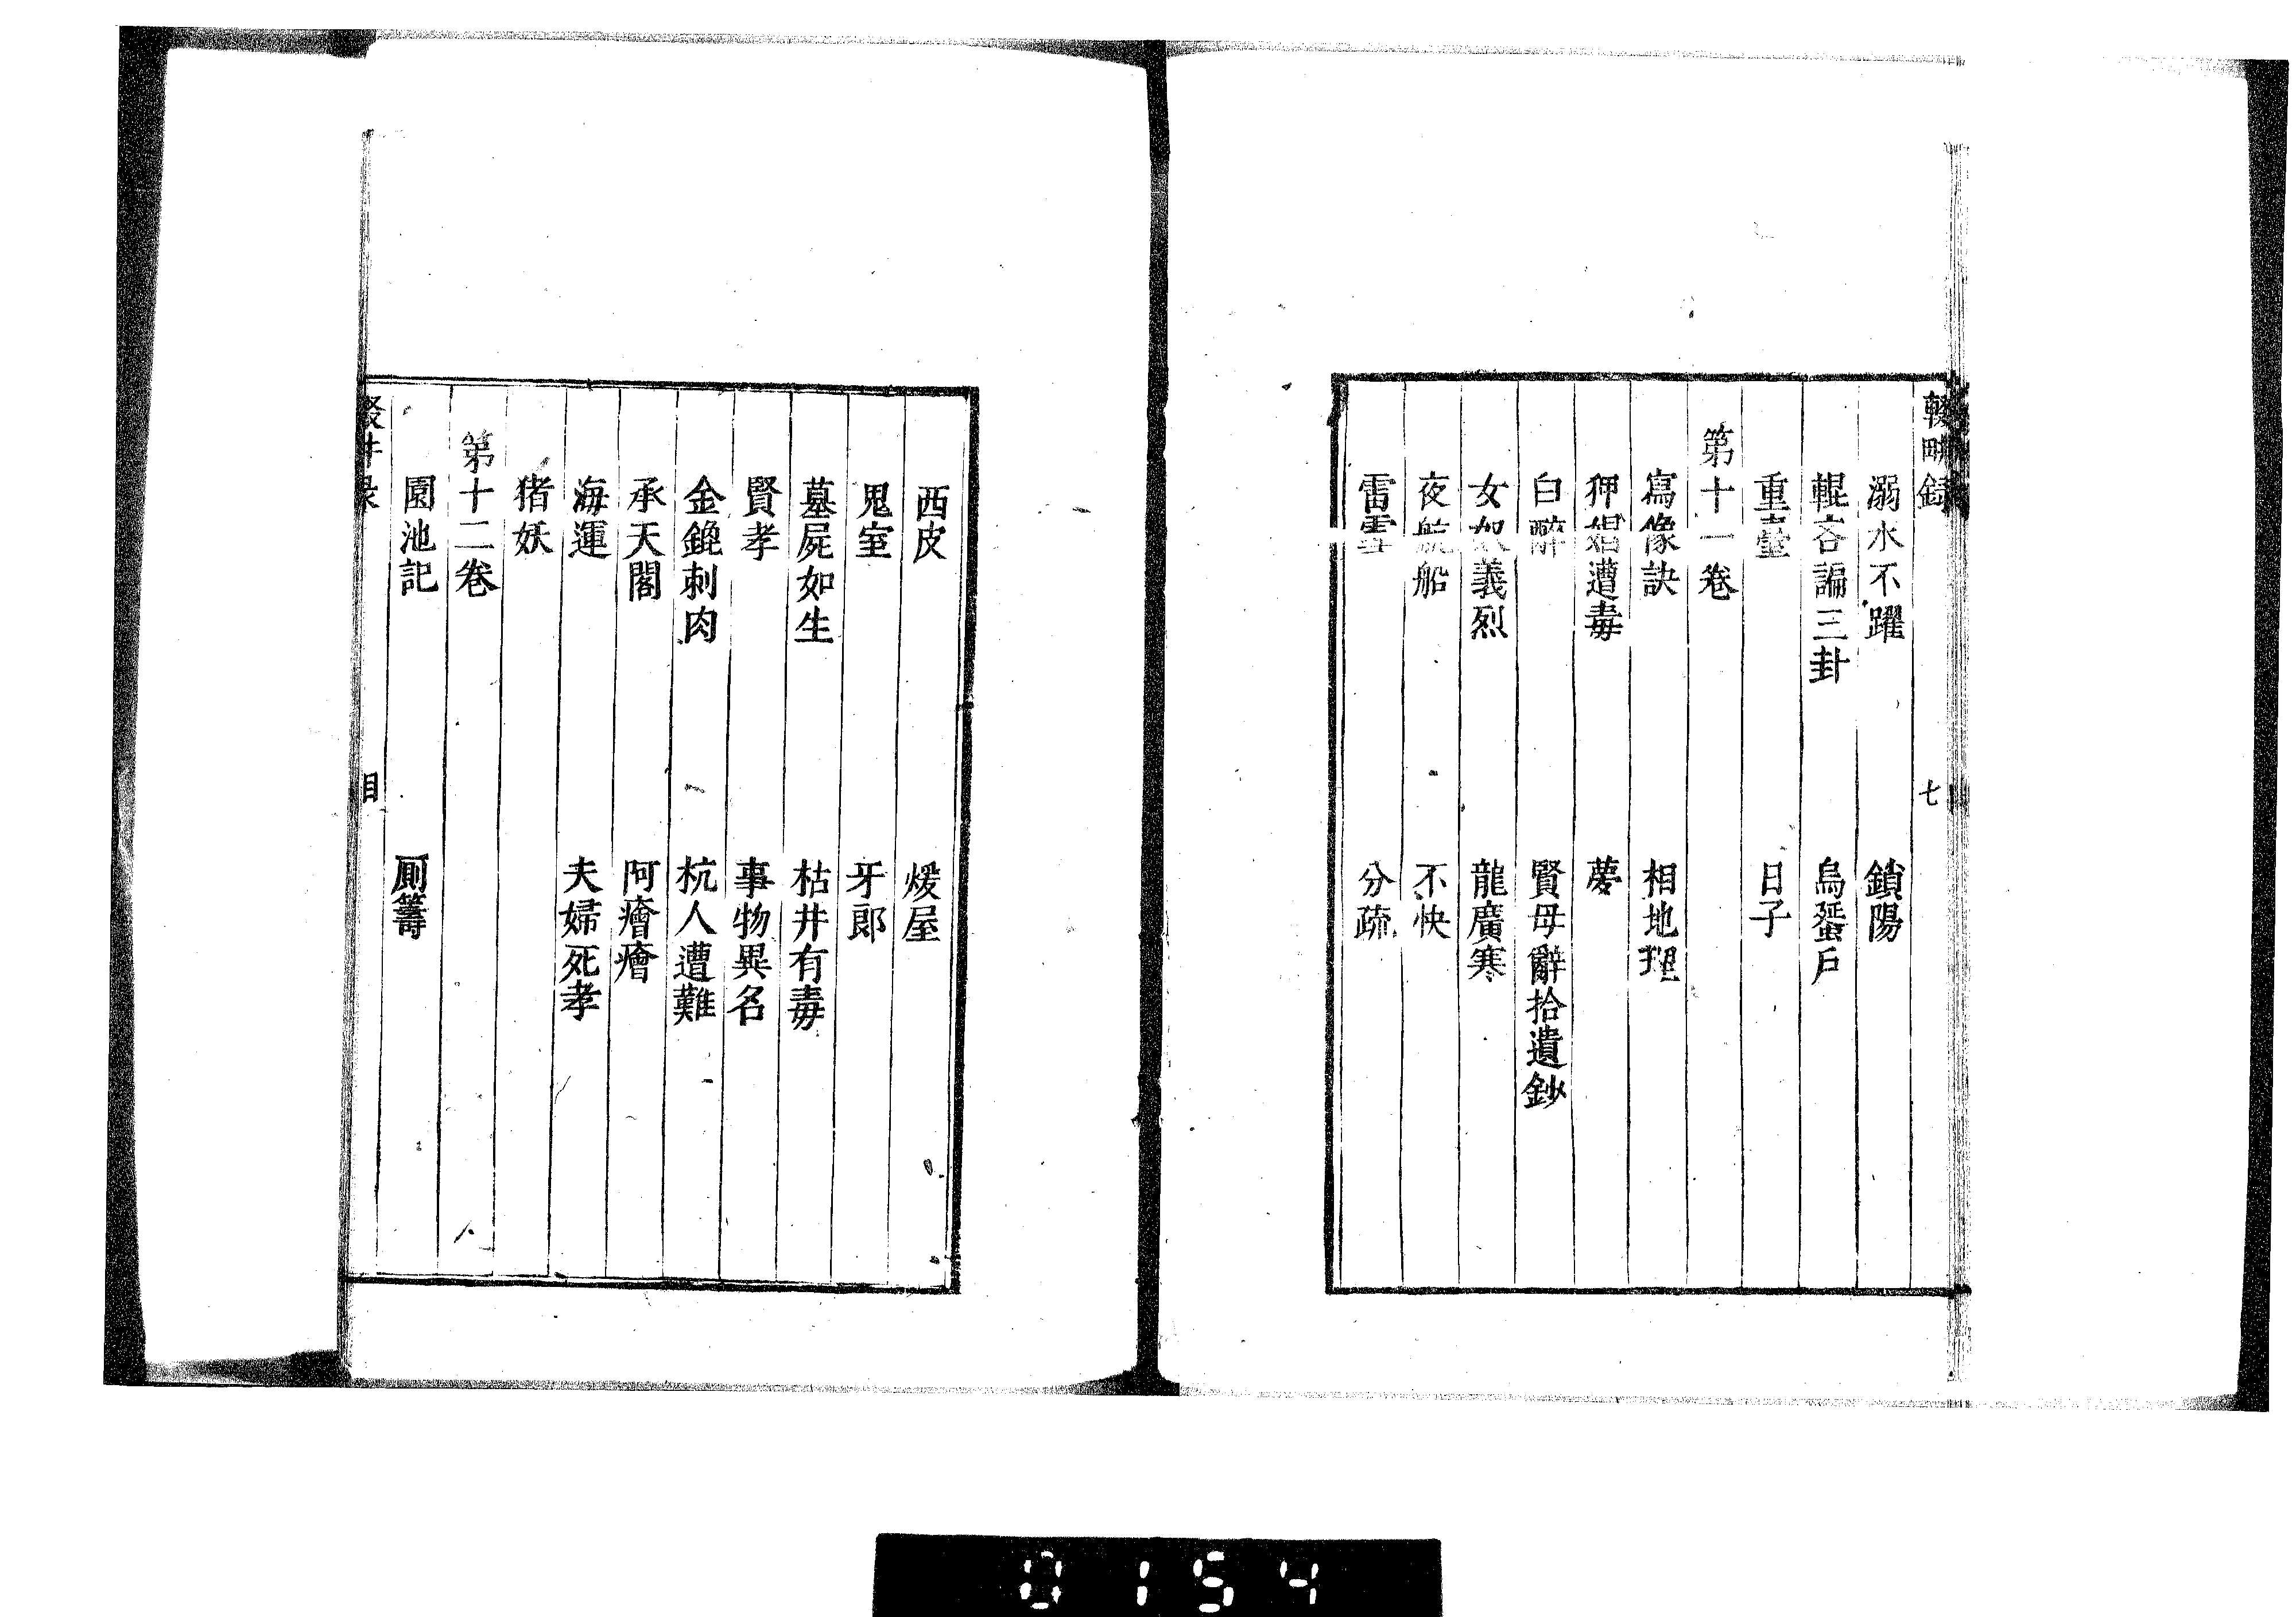 輟畊録 七
溺水不躍 鎖陽
輥咨諞三封 烏蜑戶
重臺 日子
第十一卷
寫像訣 相地理
狎娼遭毒 夢
白醉 賢母辭拾遺鈔
女奴義烈 龍廣寒
夜航船 不快
雷雪 分疏
西皮 煖屋
鬼室 牙郎
墓屍如生 枯井有毒
賢孝 事物異名
金鎞刺肉 杭人遭難
承天閣 阿㿊㿊
海運 夫婦死孝
猪妖
第十二卷
園池記 厠籌
目
0154